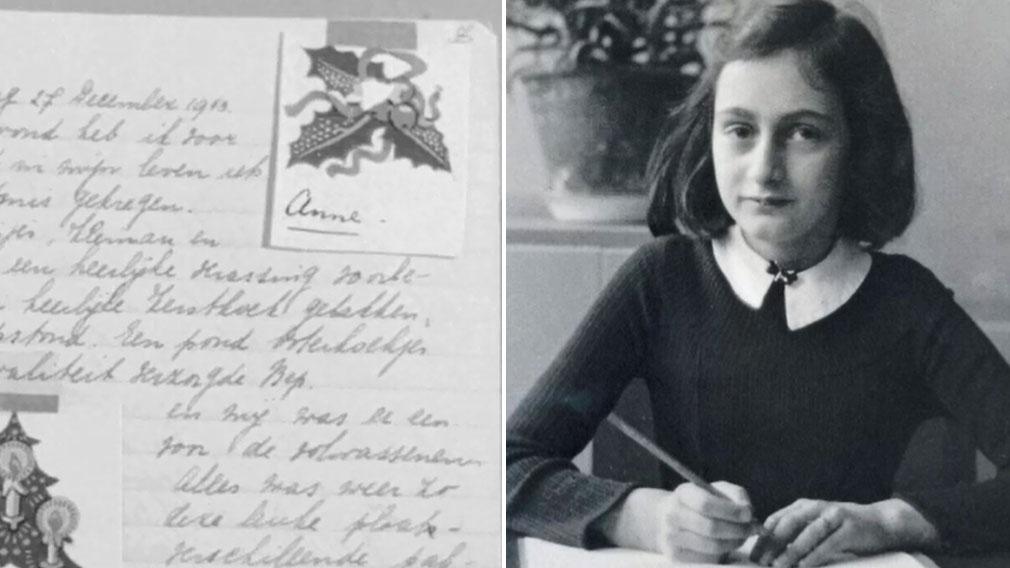 27 December 1943.
vond heb ik voor
in mijn leven iets
gekregen.
Anne.
en
een heerlijke verrassing voorbe-
heerlijke gebakken,
stond. Een pond boterkoekjes
waliteit verzorgde Bep.
en mij was er een
van de volwassenen
Alles was weer zo
deze leuke plaat-
verschillende pak-